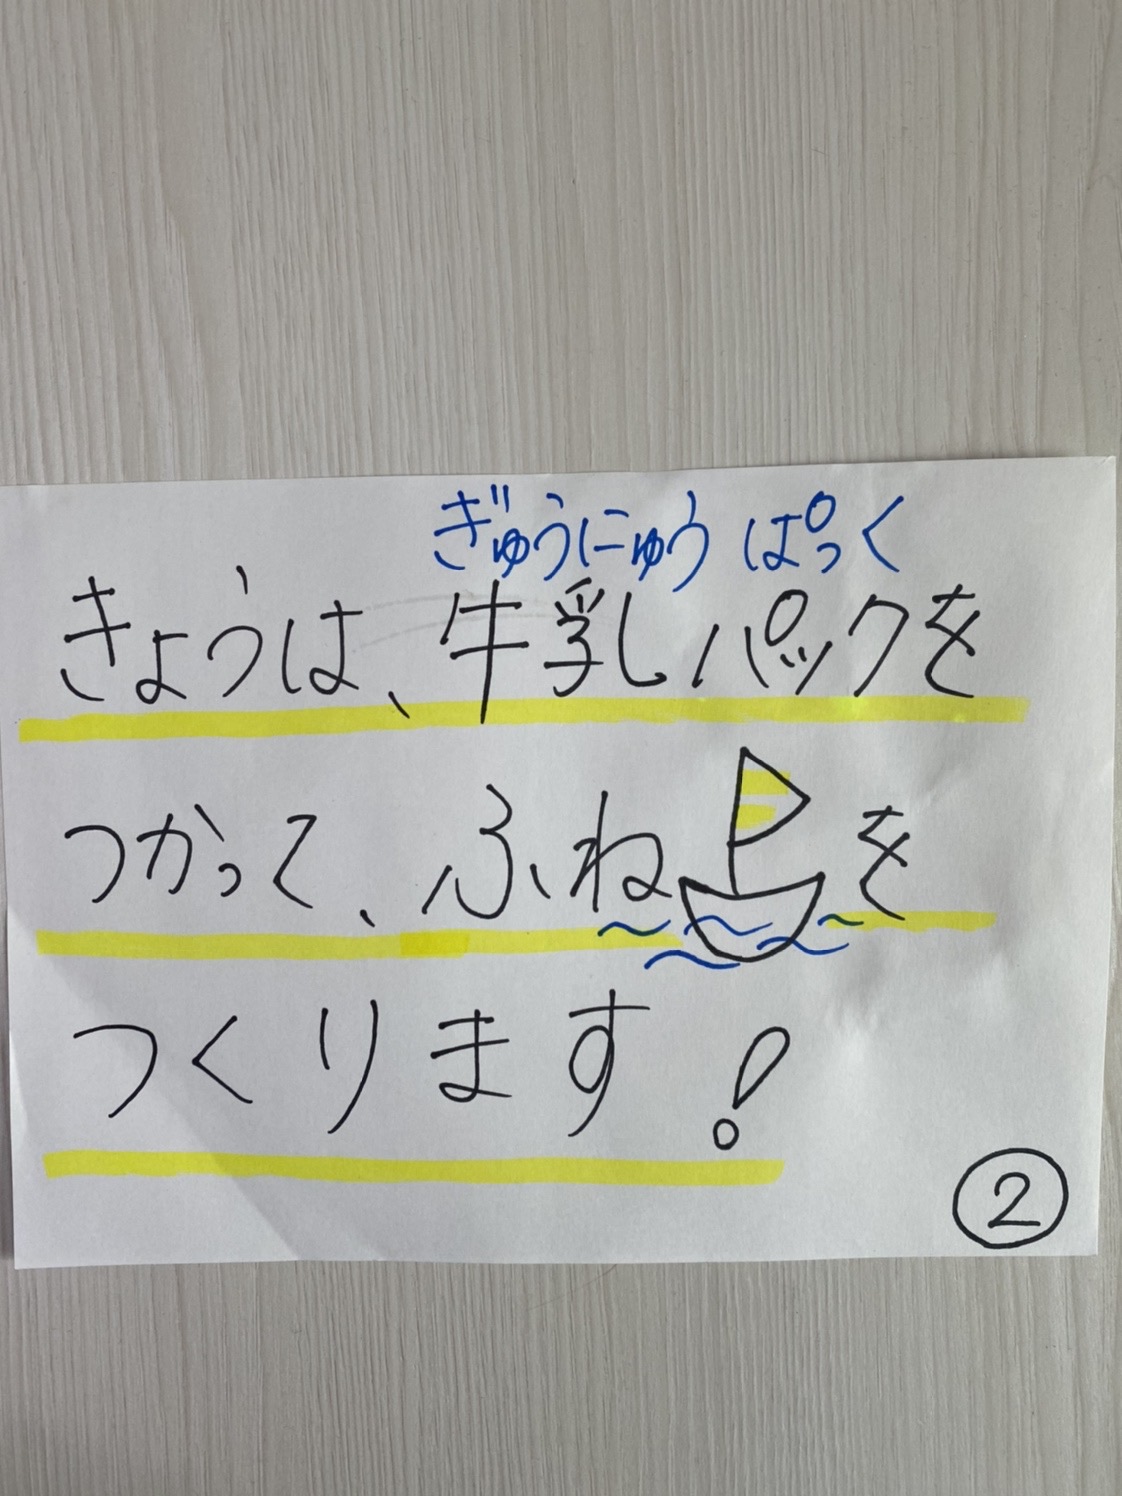 ぎゅうにゅう ぱっく
きょうは、牛乳パックを
つかって、ふねを
つくります!
②